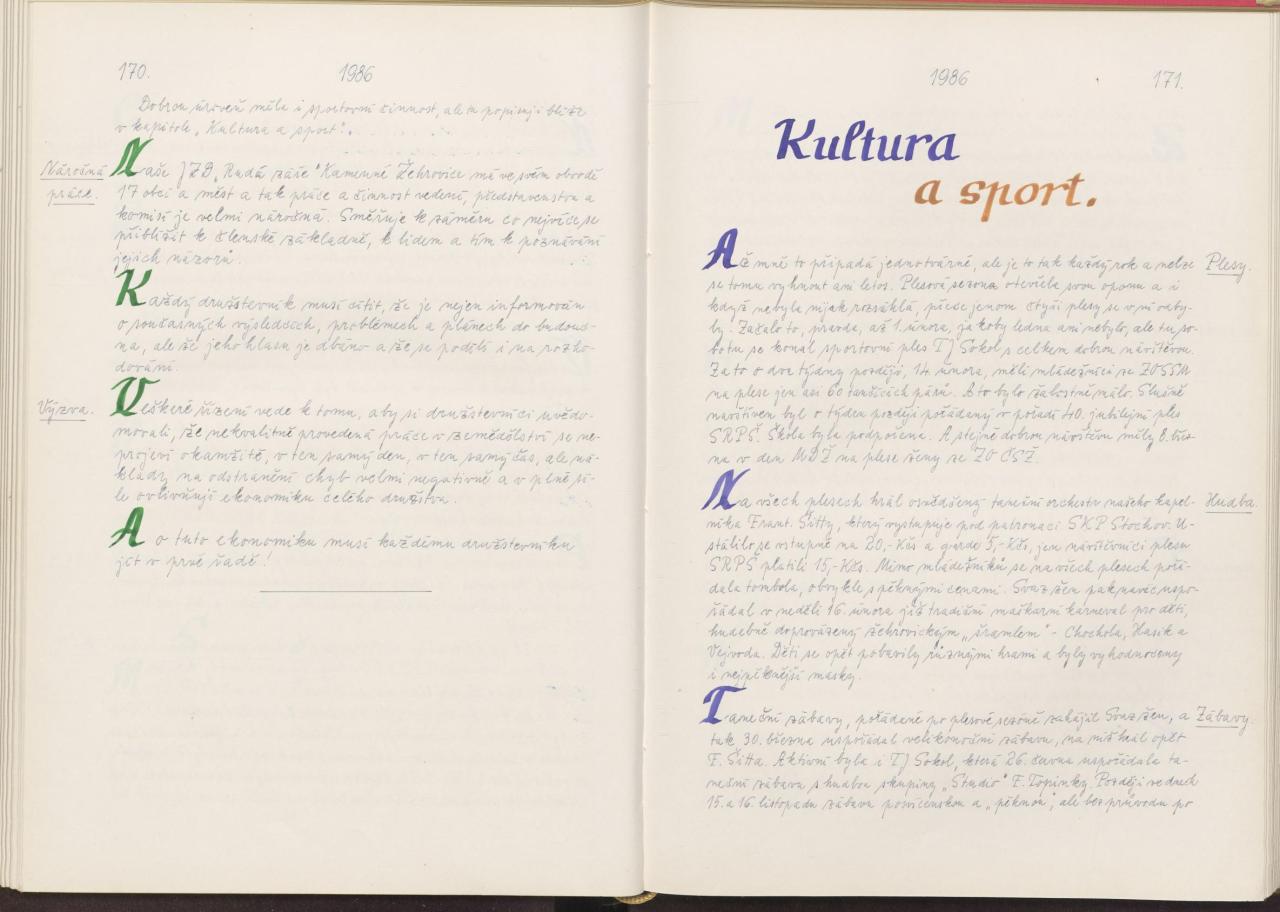 170.
1986
Dobrou úroveň měla i sportovní činnost, ale tu popisuji blíže
v kapitole „Kultura a sport“.
Náročná
práce.
Naše JZD „Rudá záře“ Kamenné Žehrovice má ve svém obvodě
17 obcí a měst a tak práce a činnost vedení, představenstva a
komisí je velmi náročná. Směřuje k záměru co nejvíce se
přiblížit k členské základně, k lidem a tím k poznávání
jejich názorů.
Každý družstevník musí cítit, že je nejen informován
o současných výsledcích, problémech a plánech do budouc-
na, ale že jeho hlasu je dbáno a že se podílí i na rozho-
dování.
Výzva.
Veškeré řízení vede k tomu, aby si družstevníci uvědo-
movali, že nekvalitně provedená práce v zemědělství se ne-
projeví okamžitě, v ten samý den, v ten samý čas, ale ná-
klady na odstranění chyb velmi negativně a v plné sí-
le ovlivňují ekonomiku celého družstva.
A o tuto ekonomiku musí každému družstevníku
jít v prvé řadě!
1986
171.
Kultura
a sport.
Až mně to připadá jednotvárné, ale je to tak každý rok a nelze
Plesy.
se tomu vyhnout ani letos. Plesová sezona otevřela svou oponu a i
když nebyla nijak rozsáhlá, přece jenom čtyři plesy se v ní odby-
ly. Začalo to, pravda, až 1. února, jakoby ledna ani nebylo, ale tu so-
botu se konal sportovní ples TJ Sokol s celkem dobrou návštěvou.
Za to o dva týdny později, 14. února, měli mládežníci ze ZOSSM
na plese jen asi 60 tančících párů. A to bylo žalostně málo. Slušně
navštíven byl o týden později pořádaný v pořadí 40. jubilejní ples
SRPŠ. Škola byla podpořena. A stejně dobrou návštěvu měly 8. břez-
na v den MDŽ na plese ženy ze ZO ČSŽ.
Na všech plesech hrál osvědčený taneční orchestr našeho kapel-
Hudba.
níka Frant. Šitty, který vystupuje pod patronací SKP Stochov. U-
stálilo se vstupné na 20,- Kčs a garde 5,- Kčs, jen návštěvníci plesu
SRPŠ platili 15,- Kčs. Mimo mládežníků se na všech plesech pořá-
dala tombola, obvykle s pěknými cenami. Svaz žen pak navíc uspo-
řádal v neděli 16. února již tradiční maškarní karneval pro děti,
hudebně doprovázený žehrovickým „šramlem“ - Chochola, Hasík a
Vejvoda. Děti se opět pobavily různými hrami a byly vyhodnoceny
i nejpěknější masky.
Taneční zábavy, pořádané po plesové sezóně zahájil Svaz žen, a
Zábavy.
tak 30. března uspořádal velikonoční zábavu, na níž hrál opět
F. Šitta. Aktivní byla i TJ Sokol, která 26. června uspořádala ta-
neční zábavu s hudbou skupiny „Studio“ F. Topinky. Později ve dnech
15. a 16. listopadu zábavu posvícenskou a „pěknou“, ale bez průvodu po